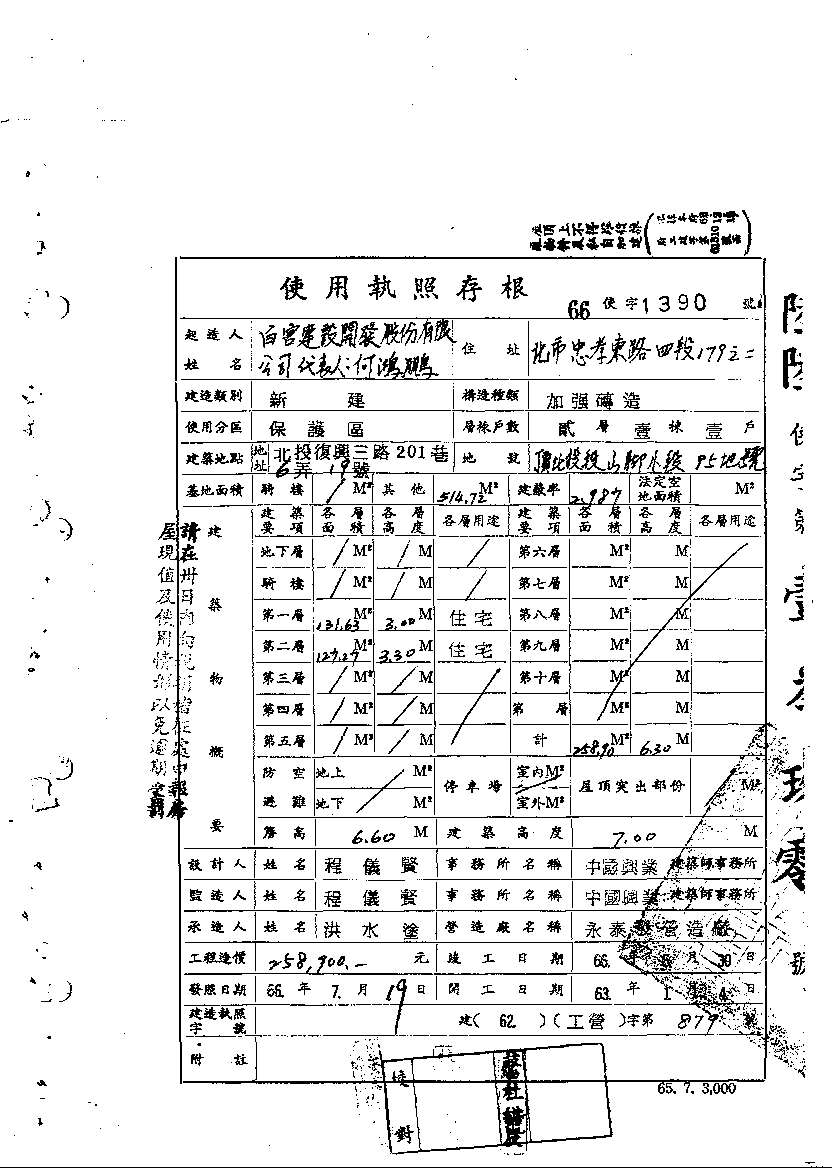 使用執照存根
66 使字1390 號
起造人姓名 白宮建設開發股份有限公司代表人:何鴻鵬 住址 北市忠孝東路四段179之二
建造類別 新建 構造種類 加强磚造
使用分區 保護區 層棟戶數 貳層壹棟壹戶
建築地點 地址 北投復興三路201巷6弄19號 地號 頂北投段山脚小段95地號
基地面積 騎樓 / M² 其他 514.72 M² 建蔽率 2.987 法定空地面積 M²
建築物概要
建築要項 各層面積 各層高度 各層用途 建築要項 各層面積 各層高度 各層用途
地下層 / M² / M / 第六層 M² M
騎樓 / M² / M / 第七層 M² M
第一層 131.63 M² 3.00 M 住宅 第八層 M² M
第二層 127.27 M² 3.30 M 住宅 第九層 M² M
第三層 / M² / M 第十層 M² M
第四層 / M² / M 第 層 M² M
第五層 / M² / M 計 258.90 M² 6.30 M
防空避難 地上 M² 地下 M² 停車場 室內M² 室外M² 屋頂突出部份 M²
簷高 6.60 M 建築高度 7.00 M
設計人 姓名 程儀賢 事務所名稱 中國興業 建築師事務所
監造人 姓名 程儀賢 事務所名稱 中國興業 建築師事務所
承造人 姓名 洪水塗 營造廠名稱 永泰 營造廠
工程造價 258,900.- 元 竣工日期 66. 年 6 月 30 日
發照日期 66. 年 7. 月 19 日 開工日期 63. 年 1 月 4 日
建造執照字號 建( 62. )(工營)字第 879 號
附註
65. 7. 3,000
校對
請在卅日內向
屋現值及使用情形以免逾期受罰
使字第
零
號